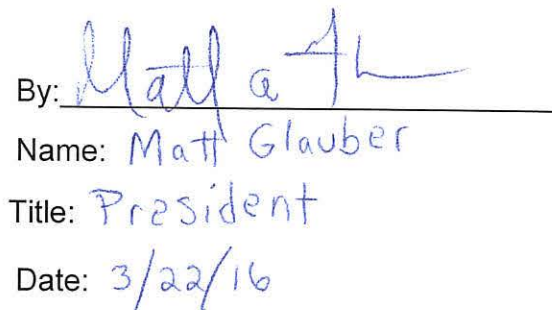 By:
Name: Matt Glauber
Title: President
Date: 3/22/16